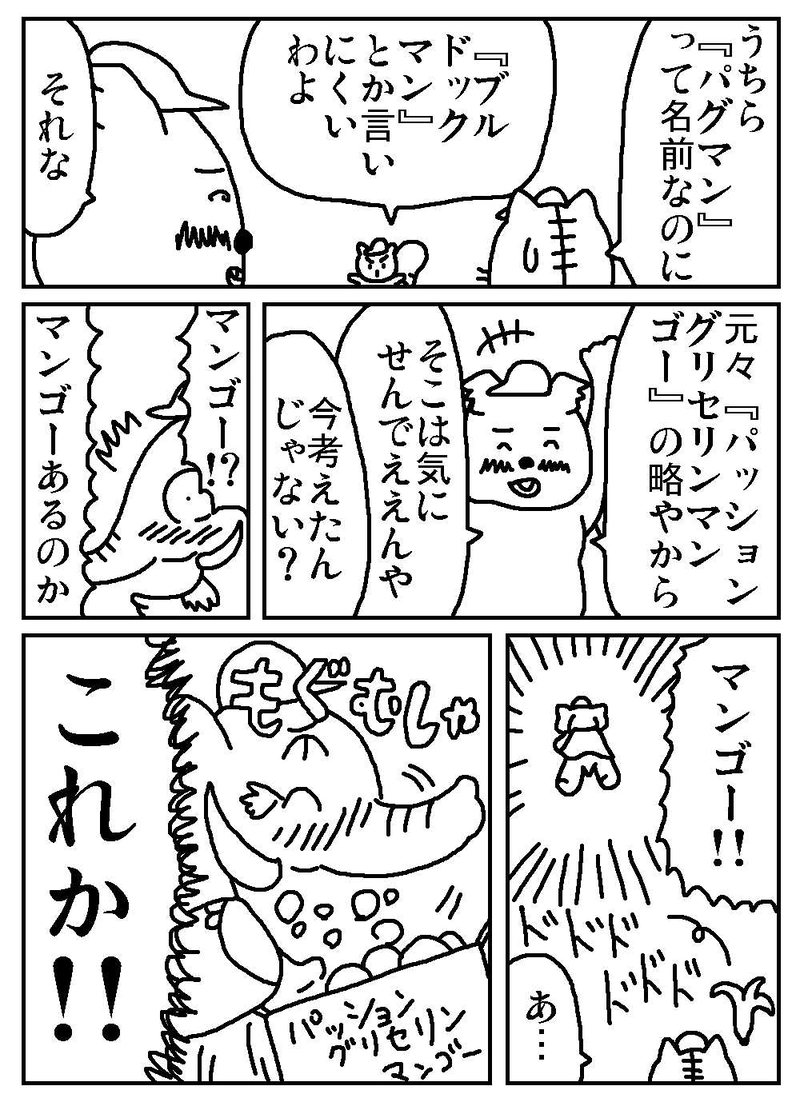 うちら
『パグマン』
って名前なのに
『ブル
ドック
マン』
とか言い
にくい
わよ
それな
元々『パッション
グリセリンマン
ゴー』の略やから
そこは気に
せんでええんや
今考えたん
じゃない？
マンゴー!?
マンゴーあるのか
マンゴー!!
ドドド
ドドド
あ…
もぐむしゃ
パッション
グリセリン
マンゴー
これか!!